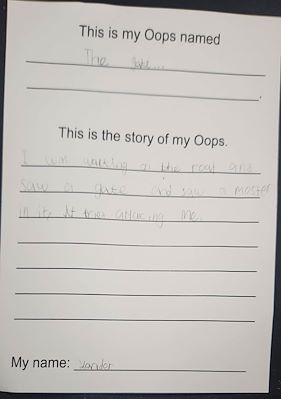 This is my Oops named
The gate...
This is the story of my Oops.
I was walking on the road and
saw a gate and saw a moster
in it. It tried attacing me.
My name: Xander